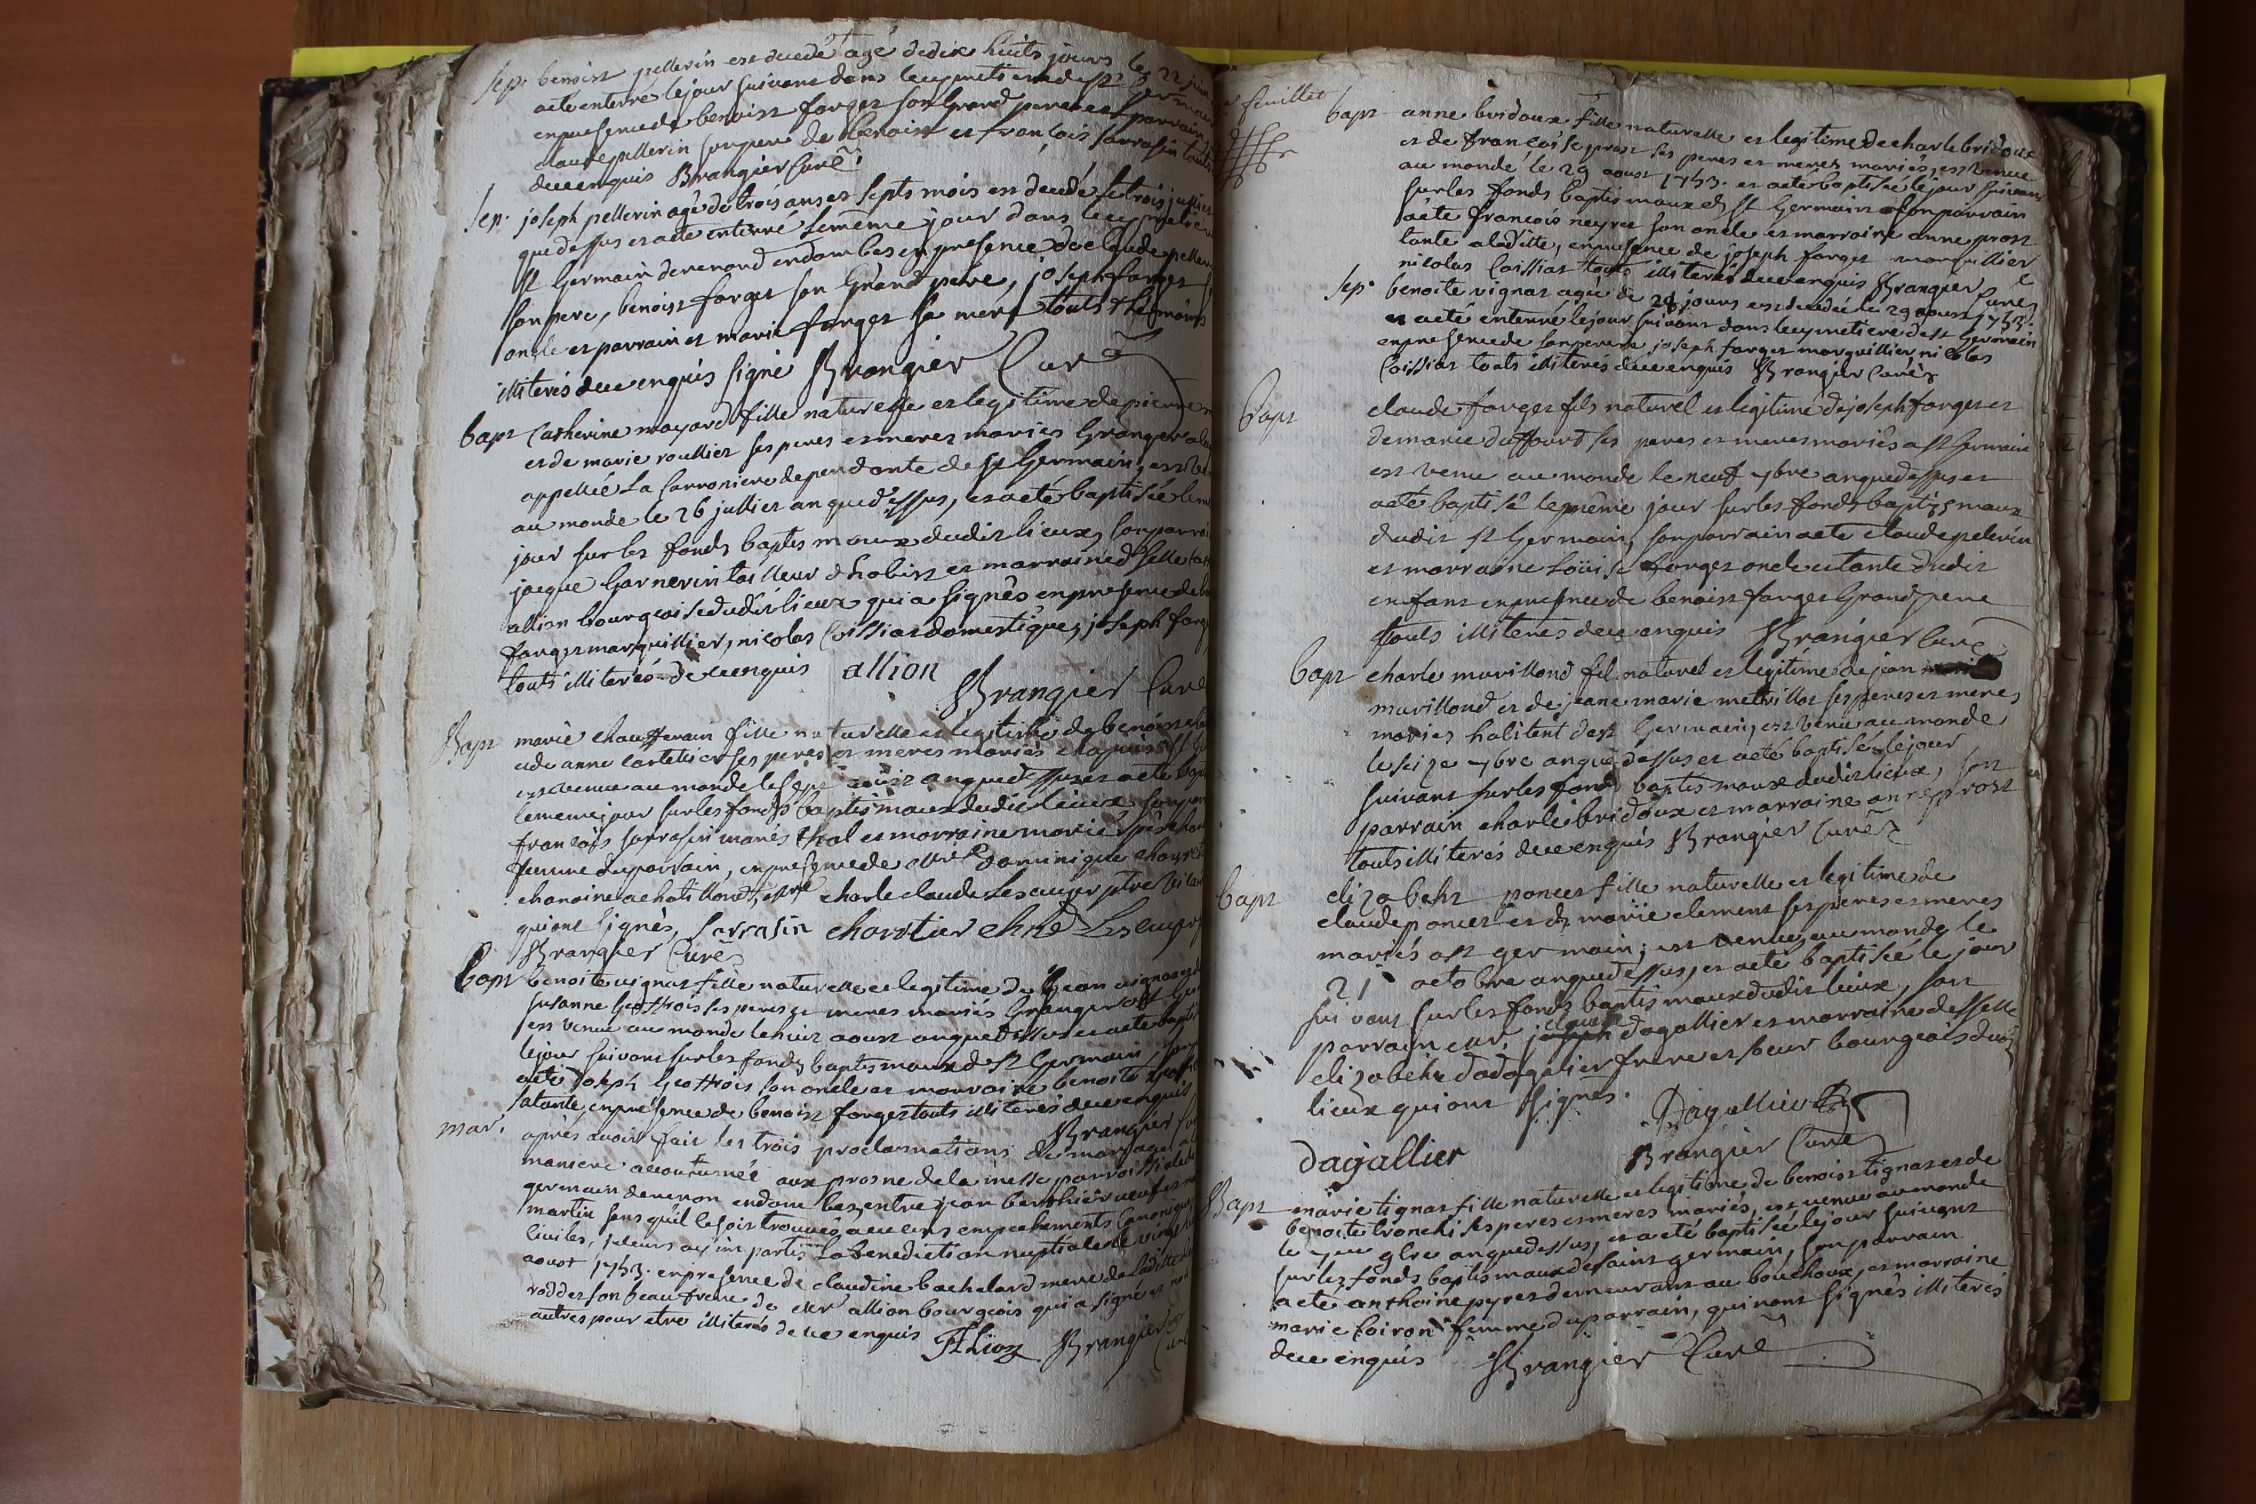 Sep. benoist pellerin est decedé agé de dix huits jours le 22 juin
a eté enterré le jour suivant dans le cymetiere de st germain
en presence de benoist forges son grand pere et parrain
claude pellerin son pere de benoist et francois sarrasin touts
de ce enquis Brangier Curé
Sep. joseph pellerin agé de trois ans et septs mois est decedé le trois jullier
que dessus et a eté enterré le même jour dans le cymetiere
st Germain de renond en dombes en presence de claude peller
son pere, benoist forges son Grand pere, joseph forges
oncle et parrain et marie forges sa mere touts themoins
illiterés de ce enquis signé Brangier Curé
bapt Catherine mayard fille naturelle et legitime de pierre
et de marie roullier ses peres et meres mariés Granger a la
appellée La Carroniere dependante de st Germain, est ve
au monde le 26 jullier an que dessus, et a eté baptisée le me
jour sur les fonds baptismaux dudit lieux, son parrai
jacque Garnerin tailleur d habits et marraine dselle
allion bourgeoise dudit lieux qui a signés en presence de
forges marguillier, nicolas Coissiar domestique, joseph forg
touts illiterés de ce enquis allion
Brangier Curé
Bapt marie chautterain fille naturelle et legitime de benoist
et de anne cartelier ses peres et meres mariés
est venue au monde le aoüst an que dessus et a eté bapt
le meme jour sur les fonds baptismaux dudit lieux son par
francois sarrasin et marraine marie
femme du parrain, en presence de Mre dominique
chanoine a chatillond, et Mre charle claude Lescuyer ptre
qui ont signés, Sarrasin charrtier chne Lescuyer
Brangier Curé
bapt benoite vignat fille naturelle et legitime de jean vignat
susanne ses peres et meres mariés Granger a st Ger
est venue au monde le huit aoust an que dessus et a eté bapti
le jour suivant sur les fonds baptismaux de st Germain, son
a eté joseph son oncle et marraine benoite
sa tante, en presence de benoist forges touts illiterés de ce enquis
Brangier
mar. après avoir fait les trois proclamations de mariage
maniere accoutumée aux prosne de la messe parroissiale de
germain de renon en dombes, entre jean berthier veuf
martin sans qu'il se soit trouvées aucuns empechements Canoniques
civiles, je leurs ay imparti la benediction nuptiale le vingt
aoust 1753. en presence de claudine bachelard mere de laditte
roddet son beau frere de Mr allion bourgeois qui a signé et
autres pour etre illiterés de ce enquis Allion Brangier Curé
feuillet
bapt anne bridoux fille naturelle et legitime de charle bridoux
et de francoise prost ses peres et meres mariés, est venue
au monde le 29 aoust 1753. et a eté baptisée le jour suivant
sur les fonds baptismaux de st Germain son parrain
a eté francois neyret son oncle et marraine anne prost
tante a laditte, en presence de joseph forges marguillier
nicolas Coissiar touts illiterés de ce enquis Brangier Curé
sep. benoite vignat agée de 28 jours est decedée le 29 aoust 1753.
et a eté enterré le jour suivant dans le cymetiere de st Germain
en presence de son pere joseph forges marguillier, nicolas
Coissiar touts illiterés de ce enquis Brangier Curé
bapt claude forges fils naturel et legitime de joseph forges et
de marie duffourd ses peres et meres mariés a st Germain
est venu au monde le neuf 7bre an que dessus et
a eté baptisé le même jour sur les fonds baptismaux
dudit st Germain, son parrain a eté claude pelerin
et marraine Loüise forges oncle et tante dudit
enfant en presence de benoist forges Grand pere
touts illiterés de ce enquis Brangier Curé
bapt charle murillond fil naturel et legitime de jean
murillond et de jeane marie metrillot ses peres et meres
mariés habitent de st Germain, est venu au monde
le seize 7bre an que dessus et a eté baptisé le jour
suivant sur les fonds baptismaux dudit lieux, son
parrain charle bridoux et marraine anne prost
touts illiterés de ce enquis Brangier Curé
bapt elizabeht poncet fille naturelle et legitime de
claude poncet et de marie clement ses peres et meres
mariés a st germain; est venue au monde le
21 octobre an que dessus, et a eté baptisée le jour
suivant sur les fonds baptismaux dudit lieux, son
parrain Mr. claude dagallier et marraine desselle
elizabeht dadagalier frere et soeur bourgeois dud
lieux qui ont signés. Dagallier
dagallier Brangier Curé
Bapt marie tignat fille naturelle et legitime de benoist tignat et de
benoite tronchi ses peres et meres mariés, est venue au monde
le 9bre an que dessus, et a eté baptisée le jour suivant
sur les fonds baptismaux de saint germain, son parrain
a eté anthoine pyres demeurant au bouchoux, et marraine
marie Coiron femme du parrain, qui n'ont signés illiterés
de ce enquis Brangier Curé